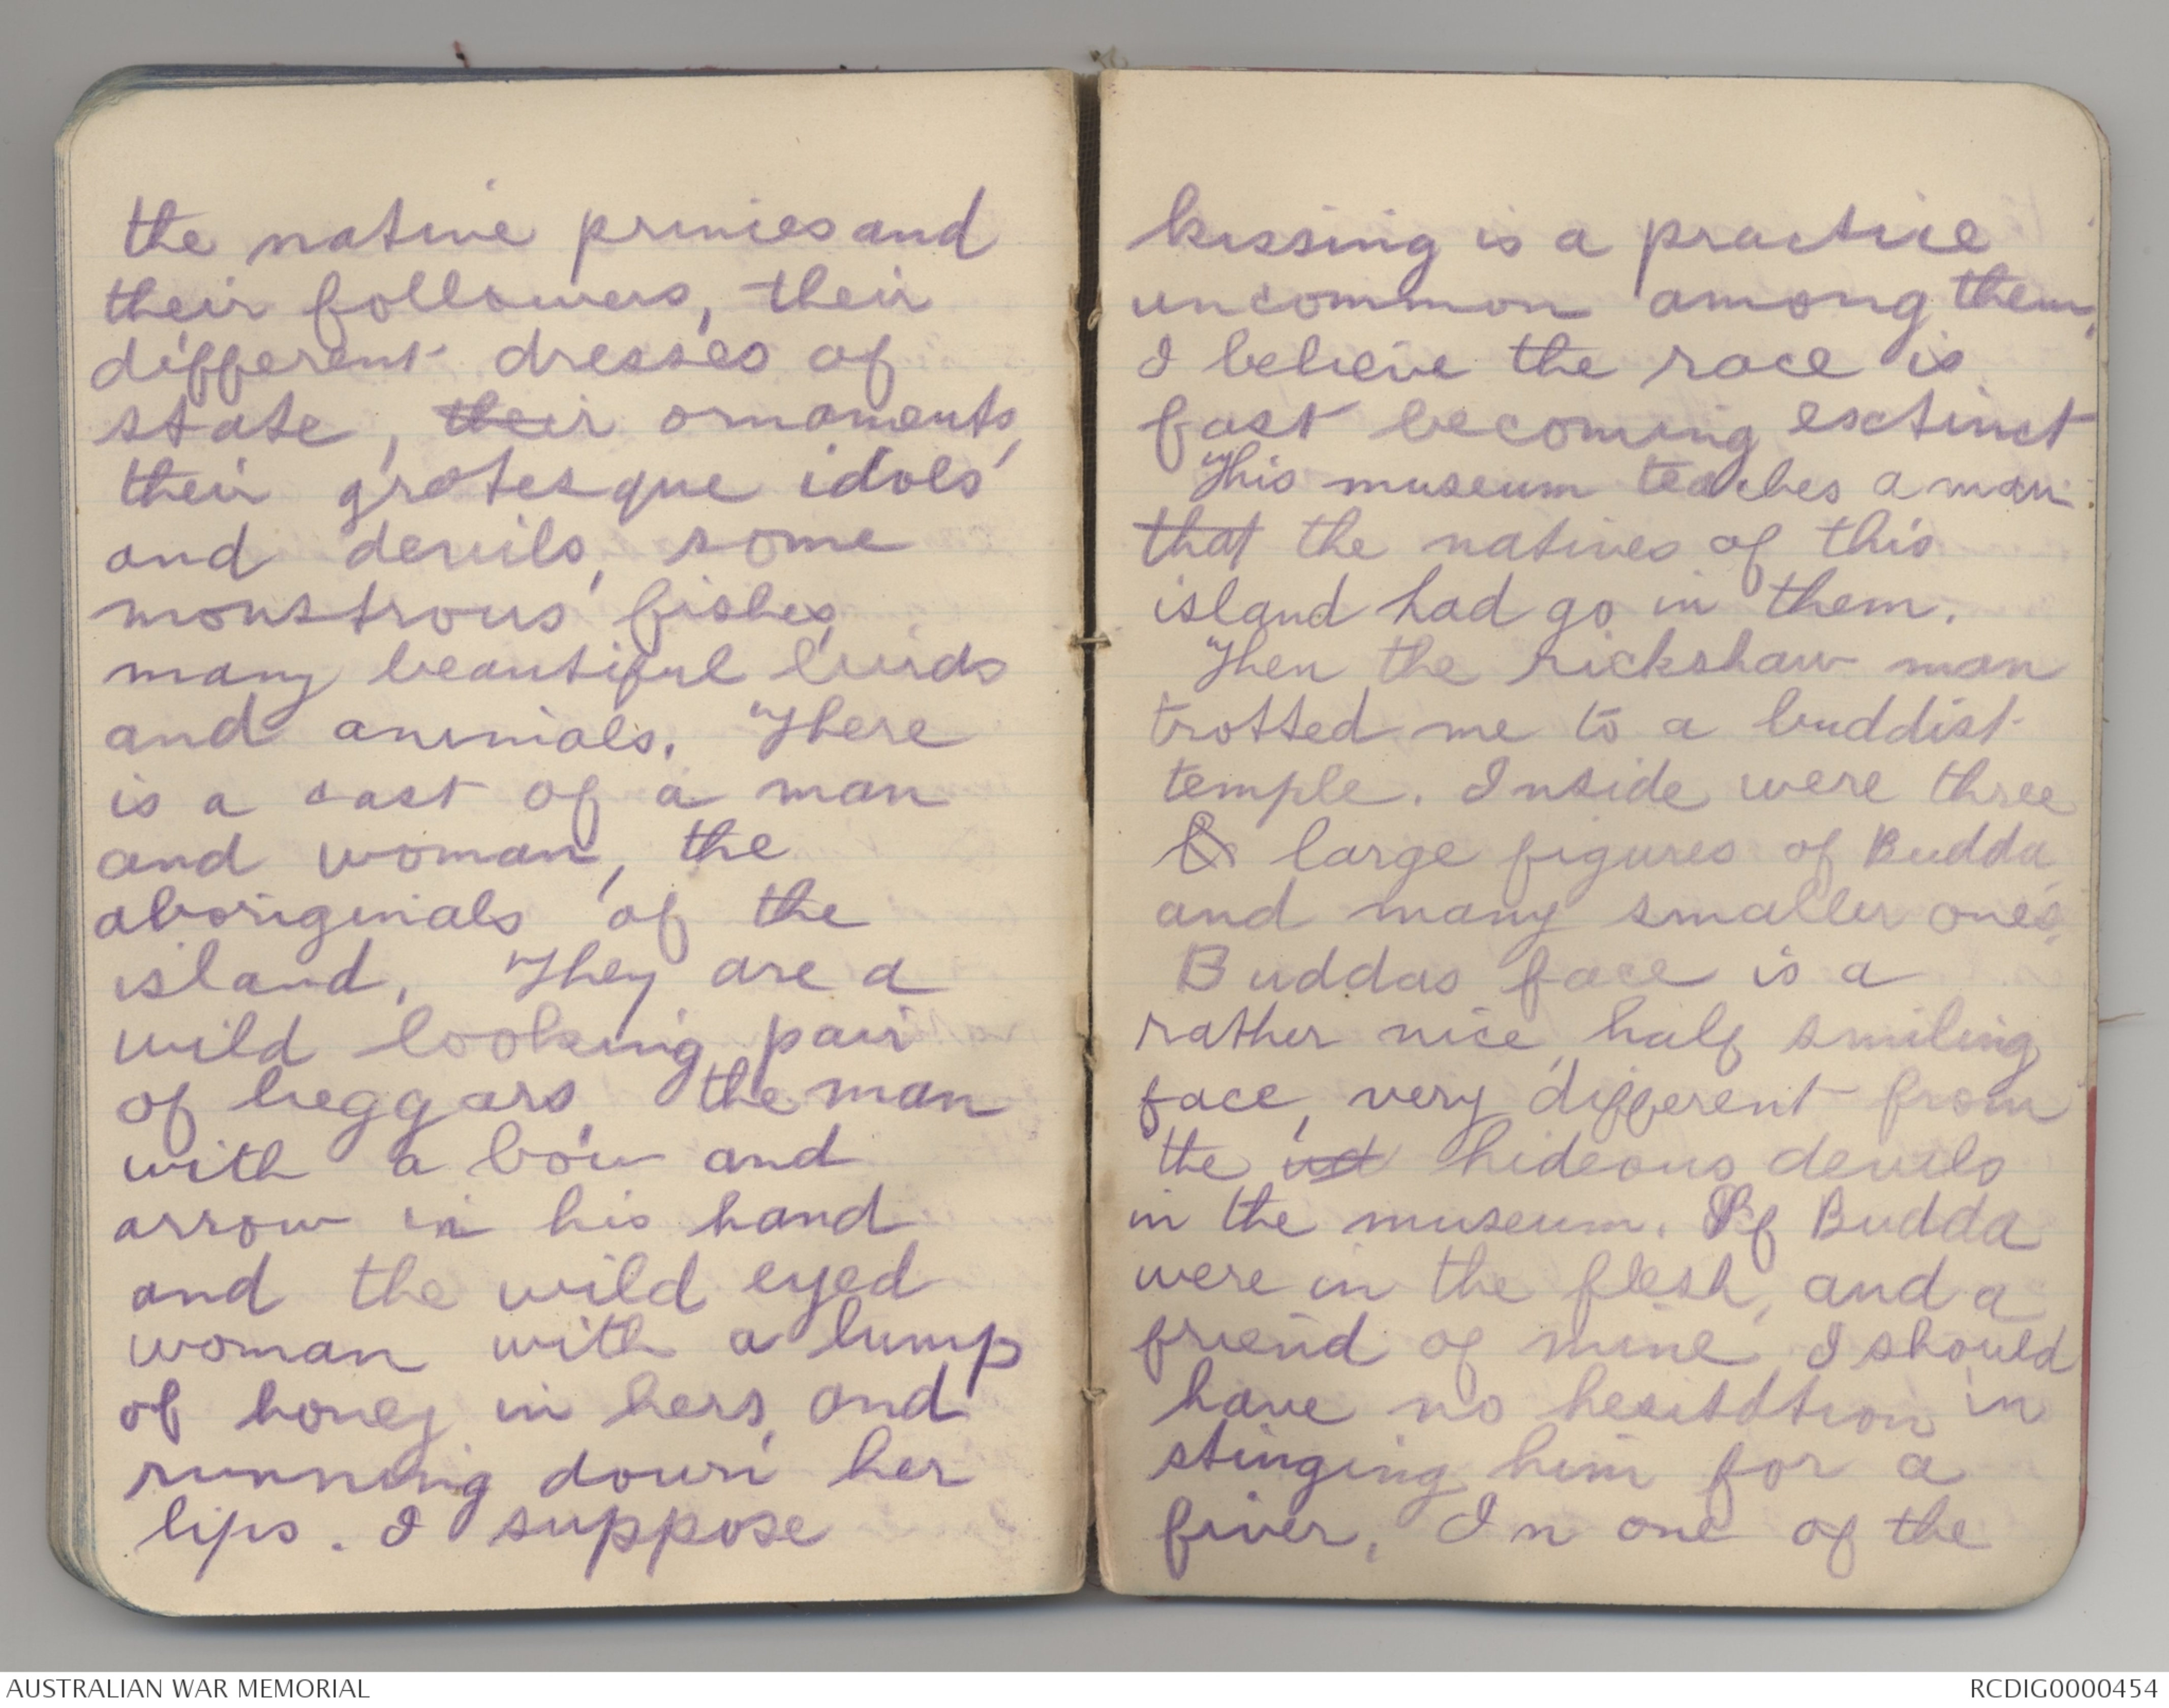 the native princes and
their followers, their
different dresses of
state, their ornaments,
their grotesque idols
and devils, some
monstrous fishes,
many beautiful birds
and animals. There
is a cast of a man
and woman, the
aboriginals of the
island. They are a
wild looking pair
of beggars, the man
with a bow and
arrow in his hand
and the wild eyed
woman with a lump
of honey in hers, and
running down her
lips. I suppose
kissing is a practice
uncommon among them,
I believe the race is
fast becoming exctinct
This museum teaches a man
that the natives of this
island had go in them.
Then the rickshaw man
trotted me to a buddist
temple. Inside were three
large figures of Budda,
and many smaller ones.
Buddas face is a
rather nice, half smiling
face, very different from
the hideous devils
in the museum. If Budda
were in the flesh, and a
friend of mine, I should
have no hesitation in
stinging him for a
fiver. In one of the
AUSTRALIAN WAR MEMORIAL
RCDIG0000454